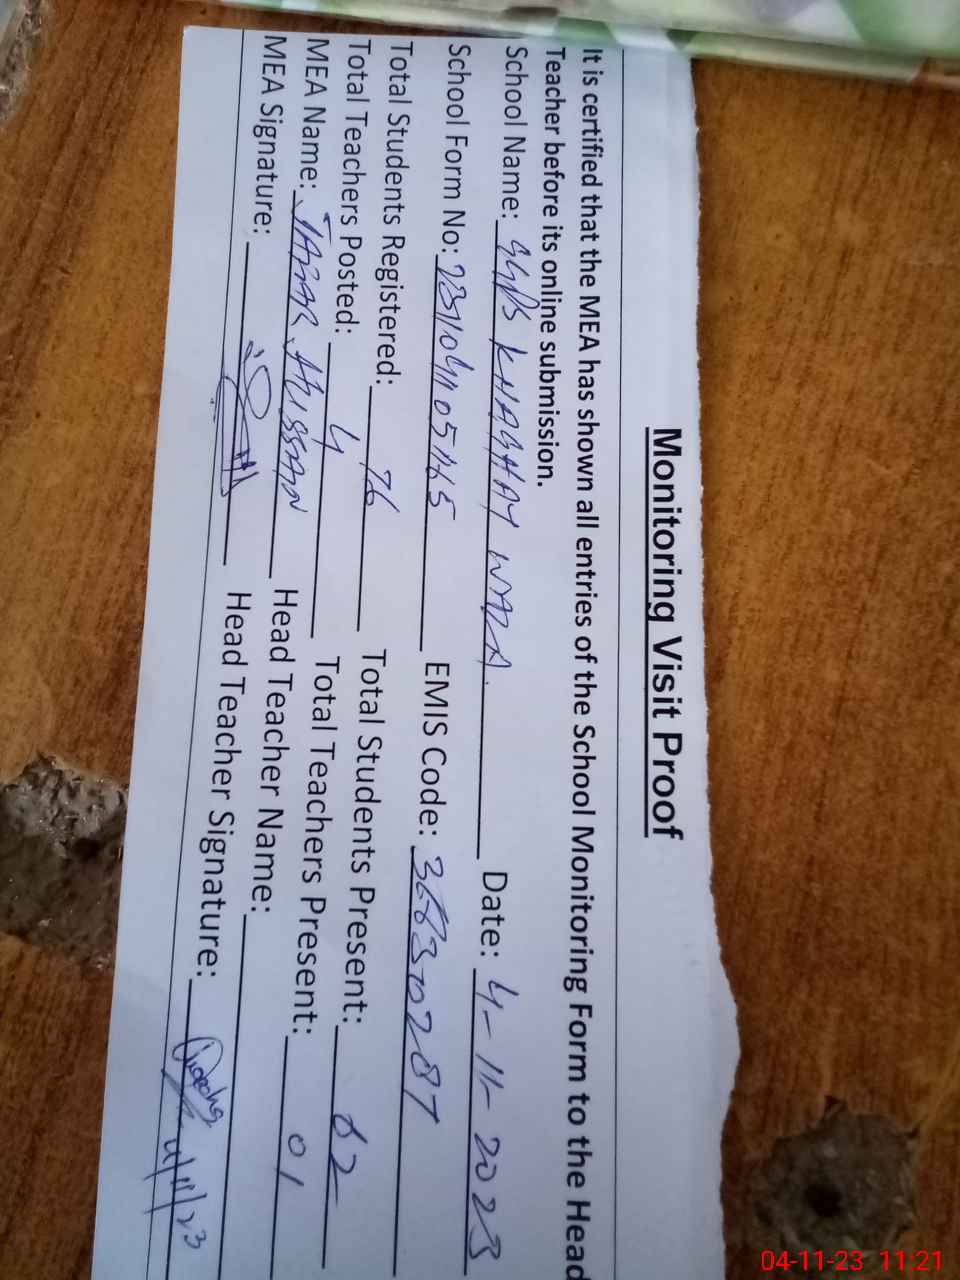 Monitoring Visit Proof
It is certified that the MEA has shown all entries of the School Monitoring Form to the Head
Teacher before its online submission.
School Name: GGPS KHAGHAY WALA. Date: 4-11-2023
School Form No: EMIS Code: 36630287
Total Students Registered: 76 Total Students Present: 62
Total Teachers Posted: 4 Total Teachers Present: 01
MEA Name: HUSSAN Head Teacher Name:
MEA Signature: Head Teacher Signature: 4/11/23
04-11-23 11:21